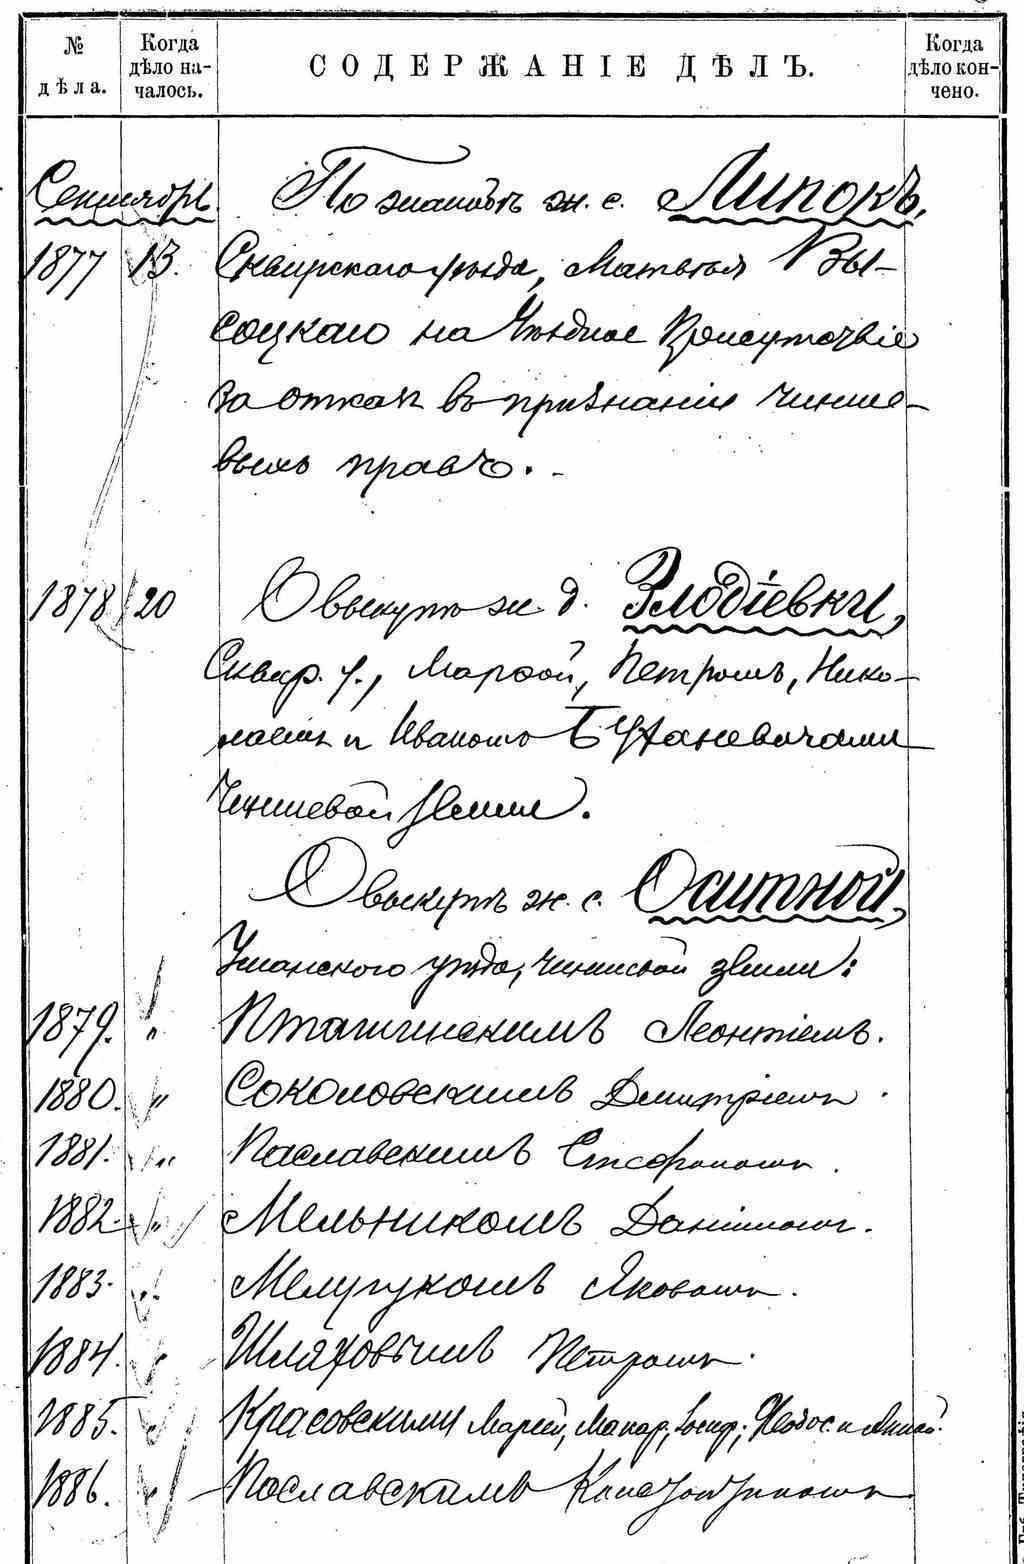 № дѣла.
Когда дѣло на-чалось.
СОДЕРЖАНІЕ ДѢЛЪ.
Когда дѣло кон-чено.
Сентябрь. По жалобѣ ж. с. Липокъ,
1877 13. Сквирскаго уѣзда, Матвѣя Вы-
соцкаго на Уѣздное Присутствіе
за отказъ въ признаніи чинше-
выхъ правъ.
1878 20 О выкупѣ ж. д. Злодіевки,
Сквир. у., Марфой, Петромъ, Нико-
лаемъ и Иваномъ
чиншевой земли.
О выкупѣ ж. с. Оситной,
Уманскаго уѣзда, чиншевой земли:
1879. " Леонтіемъ.
1880. " Соколовскимъ Дмитріемъ.
1881. " Паславскимъ
1882. " Мельникомъ Даніиломъ.
1883. " Яковомъ.
1884. " Шляховымъ Петромъ.
1885. " Красовскими Маріей, Макар., Іосиф., Ѳеодос. и Анной.
1886. " Пославскимъ